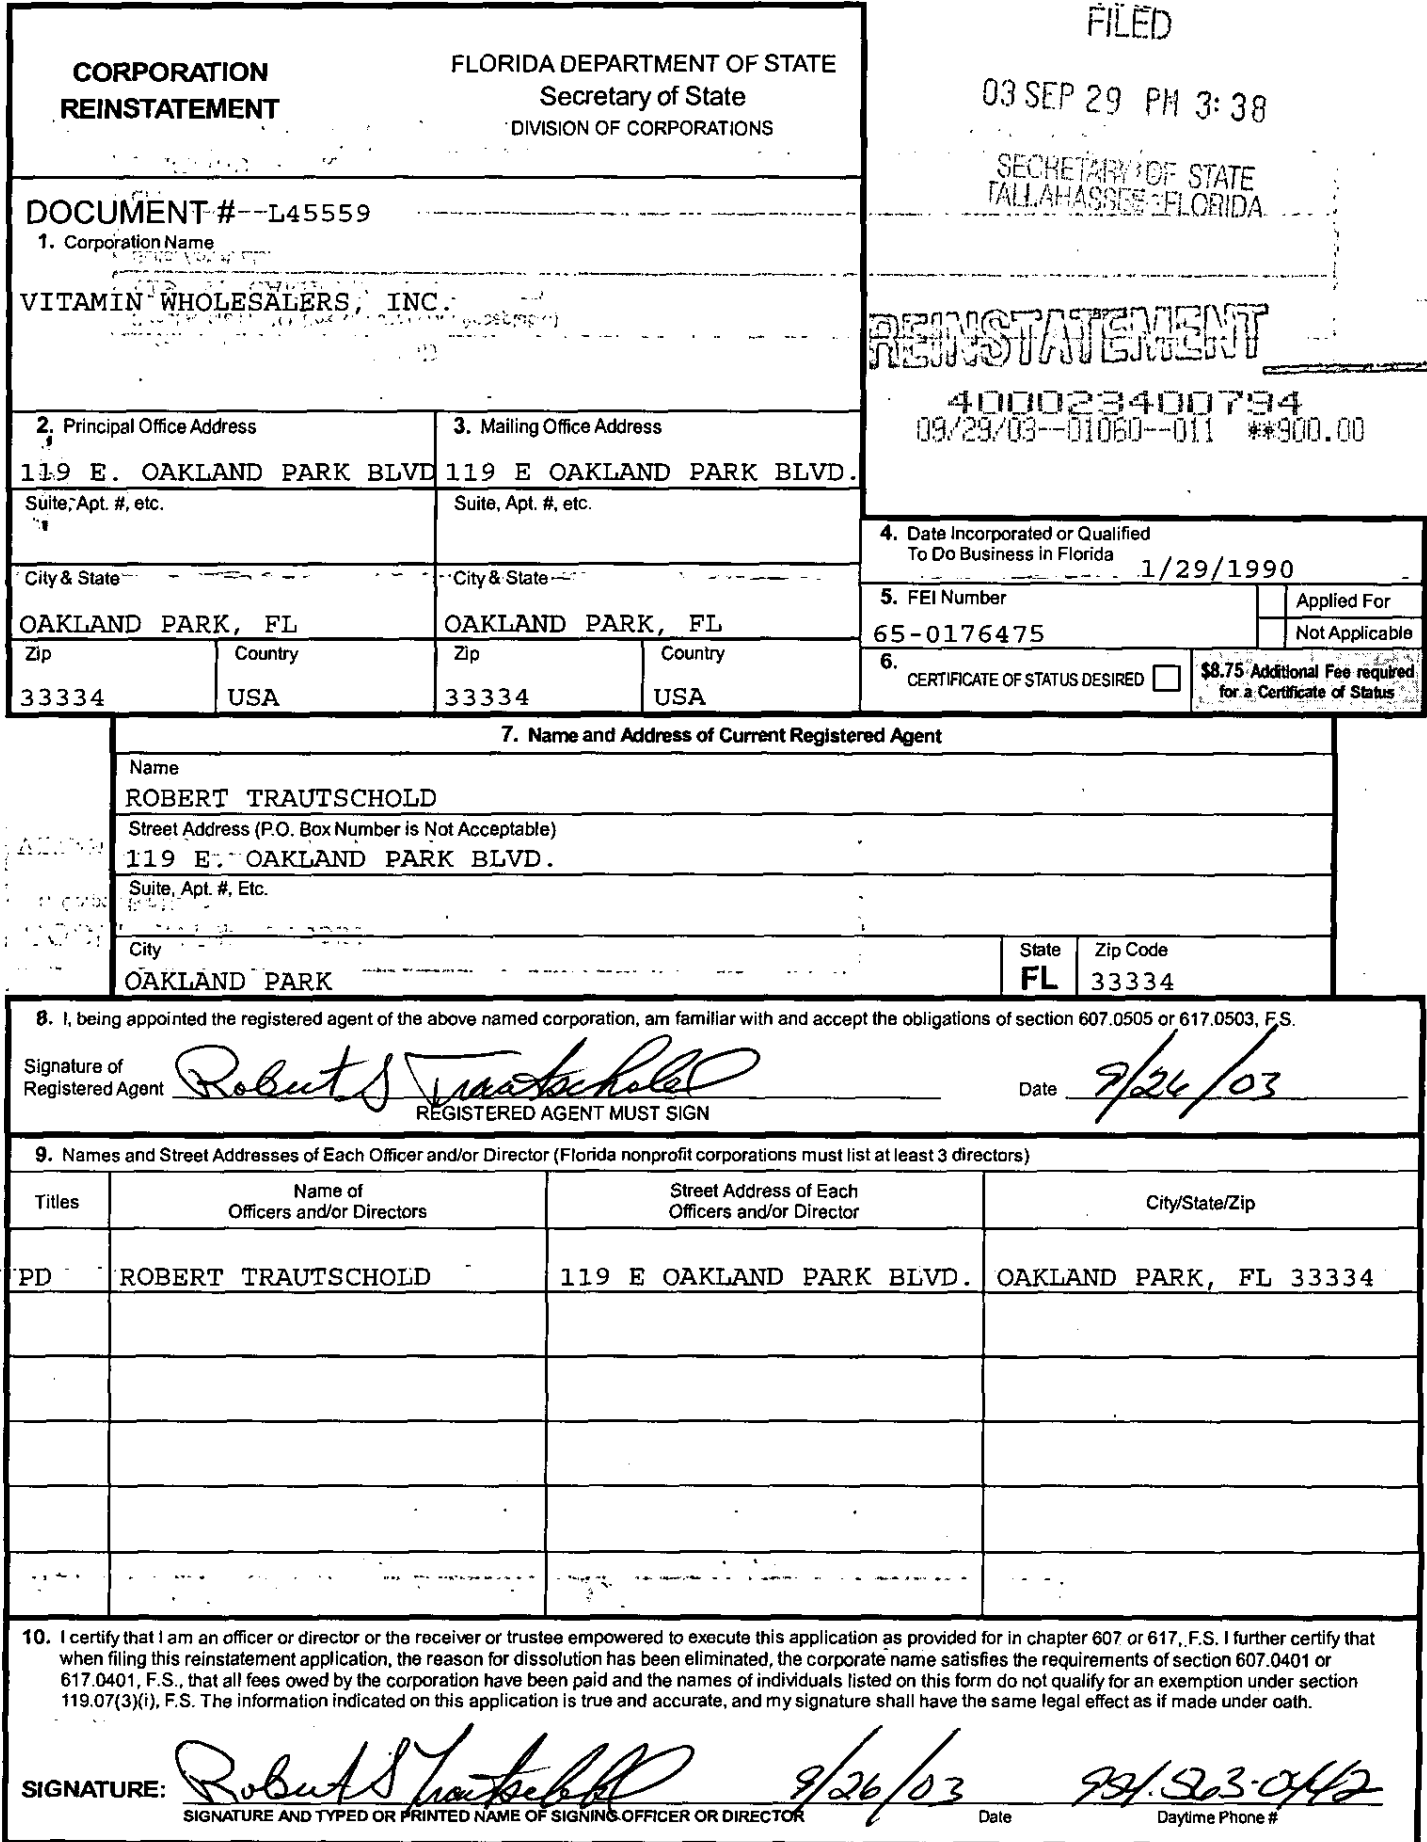 FILED
03 SEP 29 PM 3:38
SECRETARY OF STATE
TALLAHASSEE FLORIDA
CORPORATION
REINSTATEMENT
FLORIDA DEPARTMENT OF STATE
Secretary of State
DIVISION OF CORPORATIONS
DOCUMENT #--L45559
1. Corporation Name
VITAMIN WHOLESALERS, INC.
REINSTATEMENT
400023400794
09/29/03--01060--011 **900.00
2. Principal Office Address
3. Mailing Office Address
119 E. OAKLAND PARK BLVD
119 E OAKLAND PARK BLVD.
Suite, Apt. #, etc.
Suite, Apt. #, etc.
City & State
City & State
OAKLAND PARK, FL
OAKLAND PARK, FL
Zip
Country
Zip
Country
33334
USA
33334
USA
4. Date Incorporated or Qualified
To Do Business in Florida
1/29/1990
5. FEI Number
65-0176475
Applied For
Not Applicable
6. CERTIFICATE OF STATUS DESIRED
$8.75 Additional Fee required
for a Certificate of Status
7. Name and Address of Current Registered Agent
Name
ROBERT TRAUTSCHOLD
Street Address (P.O. Box Number is Not Acceptable)
119 E. OAKLAND PARK BLVD.
Suite, Apt. #, Etc.
City
OAKLAND PARK
State
FL
Zip Code
33334
8. I, being appointed the registered agent of the above named corporation, am familiar with and accept the obligations of section 607.0505 or 617.0503, F.S.
Signature of
Registered Agent
Robert S Trautschold
REGISTERED AGENT MUST SIGN
Date 9/26/03
9. Names and Street Addresses of Each Officer and/or Director (Florida nonprofit corporations must list at least 3 directors)
Titles
Name of
Officers and/or Directors
Street Address of Each
Officers and/or Director
City/State/Zip
PD
ROBERT TRAUTSCHOLD
119 E OAKLAND PARK BLVD.
OAKLAND PARK, FL 33334
10. I certify that I am an officer or director or the receiver or trustee empowered to execute this application as provided for in chapter 607 or 617, F.S. I further certify that
when filing this reinstatement application, the reason for dissolution has been eliminated, the corporate name satisfies the requirements of section 607.0401 or
617.0401, F.S., that all fees owed by the corporation have been paid and the names of individuals listed on this form do not qualify for an exemption under section
119.07(3)(i), F.S. The information indicated on this application is true and accurate, and my signature shall have the same legal effect as if made under oath.
SIGNATURE: Robert S Trautschold
9/26/03
SIGNATURE AND TYPED OR PRINTED NAME OF SIGNING OFFICER OR DIRECTOR
Date
Daytime Phone #